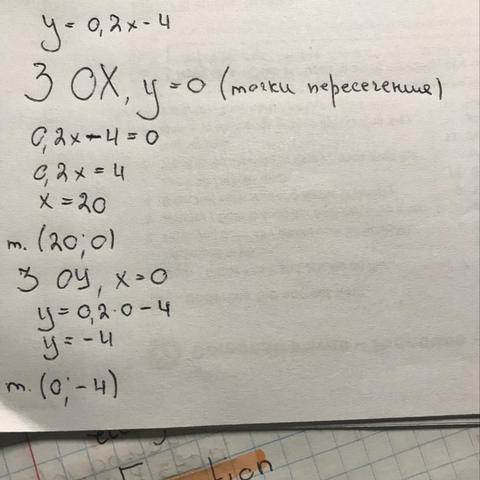 y = 0,2x - 4
З OX, y = 0 (точки пересечения)
0,2x - 4 = 0
0,2x = 4
x = 20
т. (20; 0)
З OY, x = 0
y = 0,2·0 - 4
y = -4
т. (0; -4)